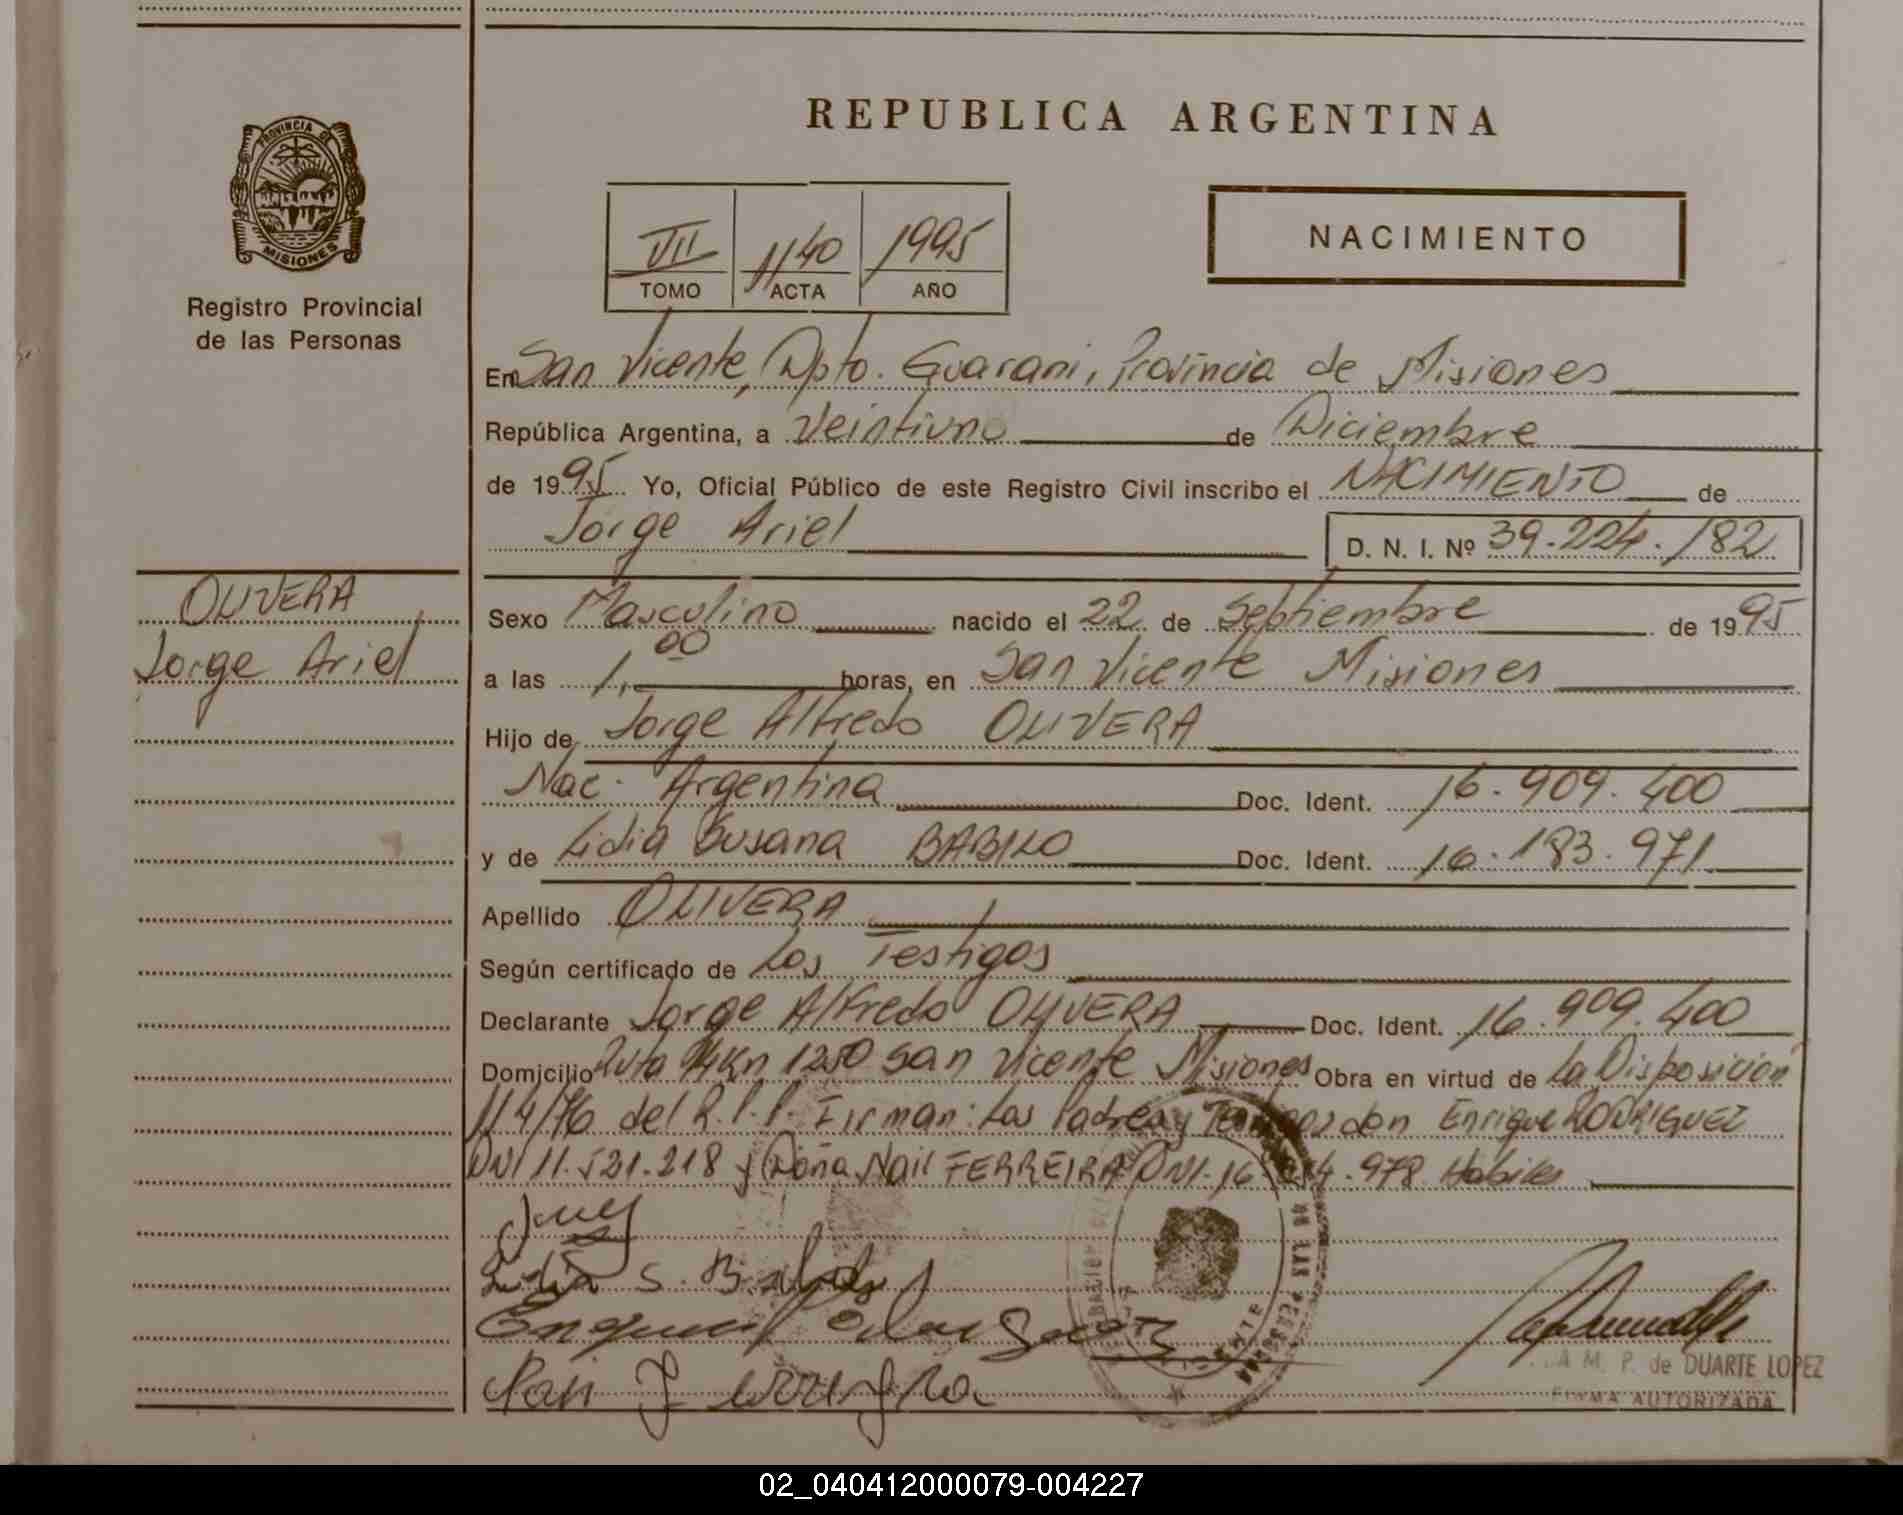 REPUBLICA ARGENTINA
PROVINCIA DE
MISIONES
Registro Provincial
de las Personas
VII 1140 1995
TOMO ACTA AÑO
NACIMIENTO
En San Vicente, Dpto. Guarani, Provincia de Misiones
República Argentina, a Veintiuno de Diciembre
de 1995 Yo, Oficial Público de este Registro Civil inscribo el NACIMIENTO de
Jorge Ariel D. N. I. Nº 39.224.182
OLIVERA
Jorge Ariel
Sexo Masculino nacido el 22 de Septiembre de 1995
a las 1,00 horas, en San Vicente Misiones
Hijo de Jorge Alfredo OLIVERA
Nac. Argentina Doc. Ident. 16.909.400
y de Lidia Susana BABILO Doc. Ident. 16.183.971
Apellido OLIVERA
Según certificado de Los Testigos
Declarante Jorge Alfredo OLIVERA Doc. Ident. 16.909.400
Domicilio Ruta 14 Kn 1250 San Vicente Misiones Obra en virtud de La Disposición
114/76 del R.P.P. Firman: Los Padres y Testigos don Enrique RODRIGUEZ
DNI 11.521.218 y Doña Nair FERREIRA DNI. 16. .978 Habiles
Lidia S.
A M. P. de DUARTE LOPEZ
FIRMA AUTORIZADA
02_040412000079-004227